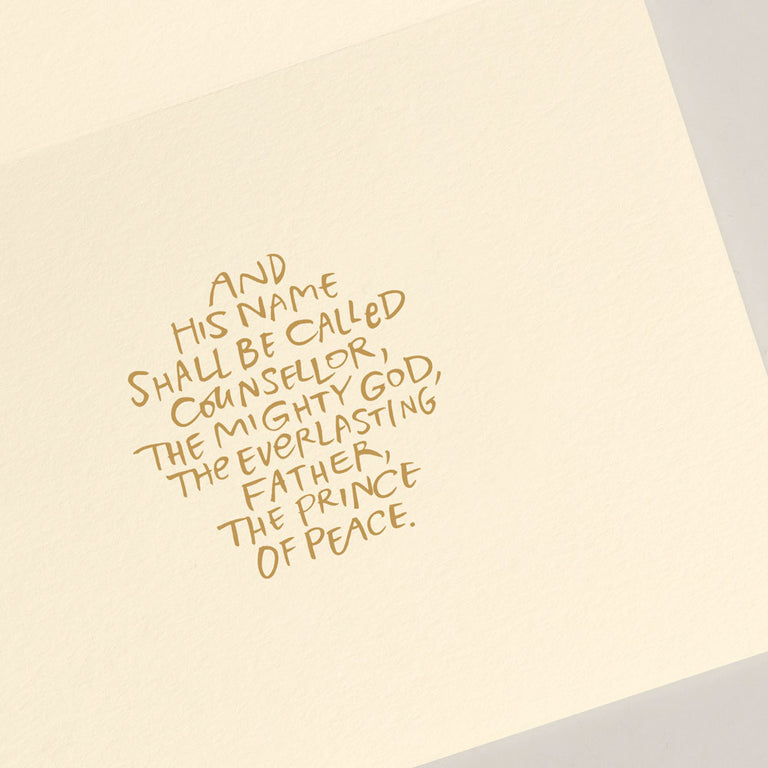 AND
HIS NAME
SHALL BE CALLeD
COUNSELLOR,
THE MIGHTY GOD,
THe EVeRLASTING
FATHER,
THE PRINCE
OF PEACE.